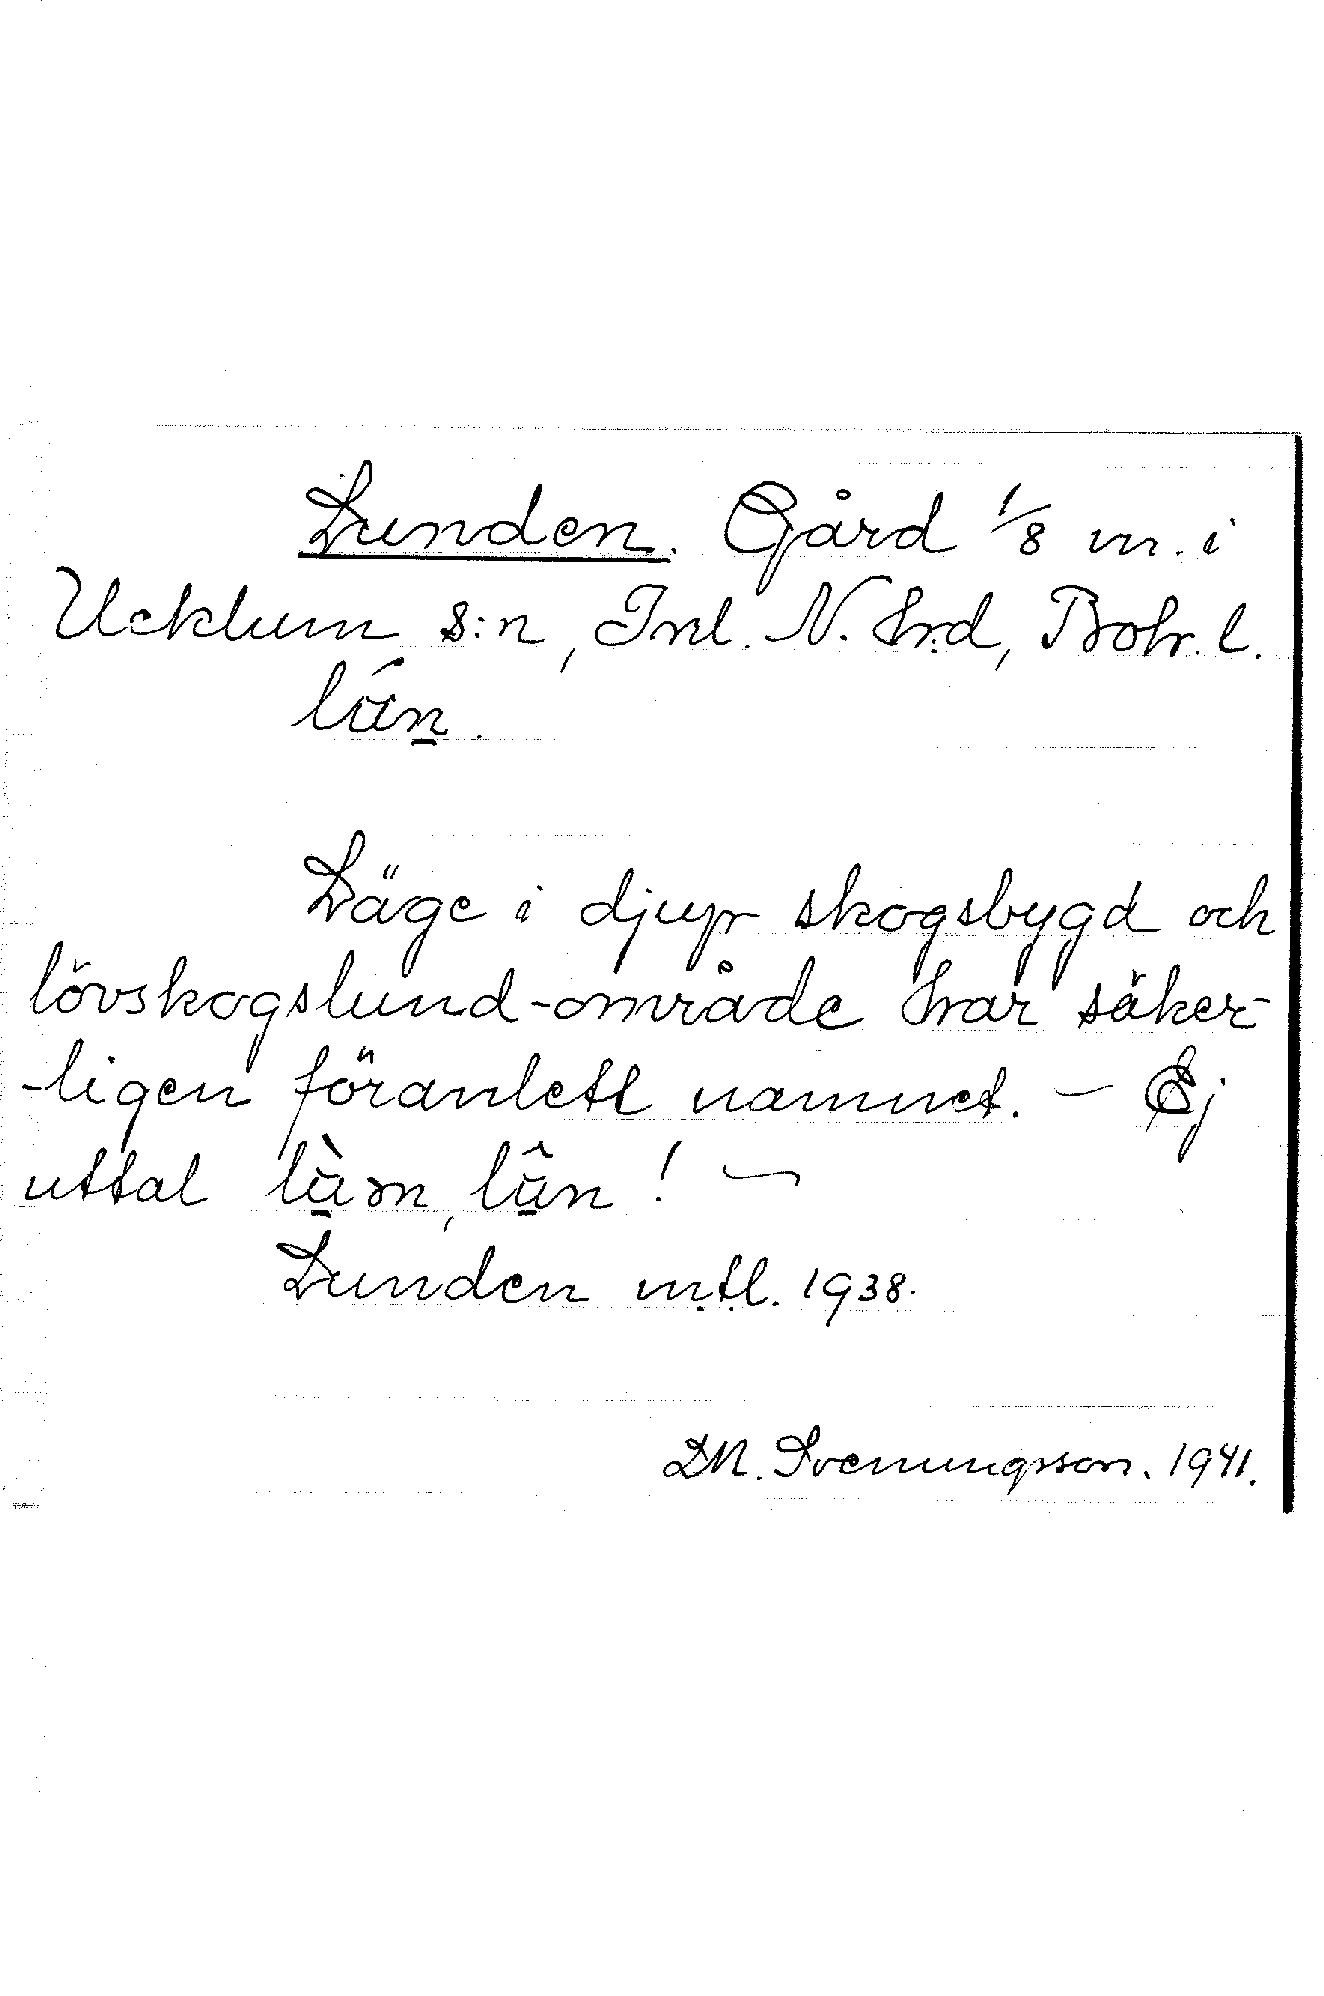 Lunden. Gård 1/8 m. i
Ucklum s:n, Inl. N. hrd, Boh. l.
lá̈n̲.
Läge i djup skogsbygd och
lövskogslund-område har säker-
-ligen föranlett namnet. – Ej
uttal l lân! –
Lunden mtl. 1938.
D.N. Svenungsson. 1941.